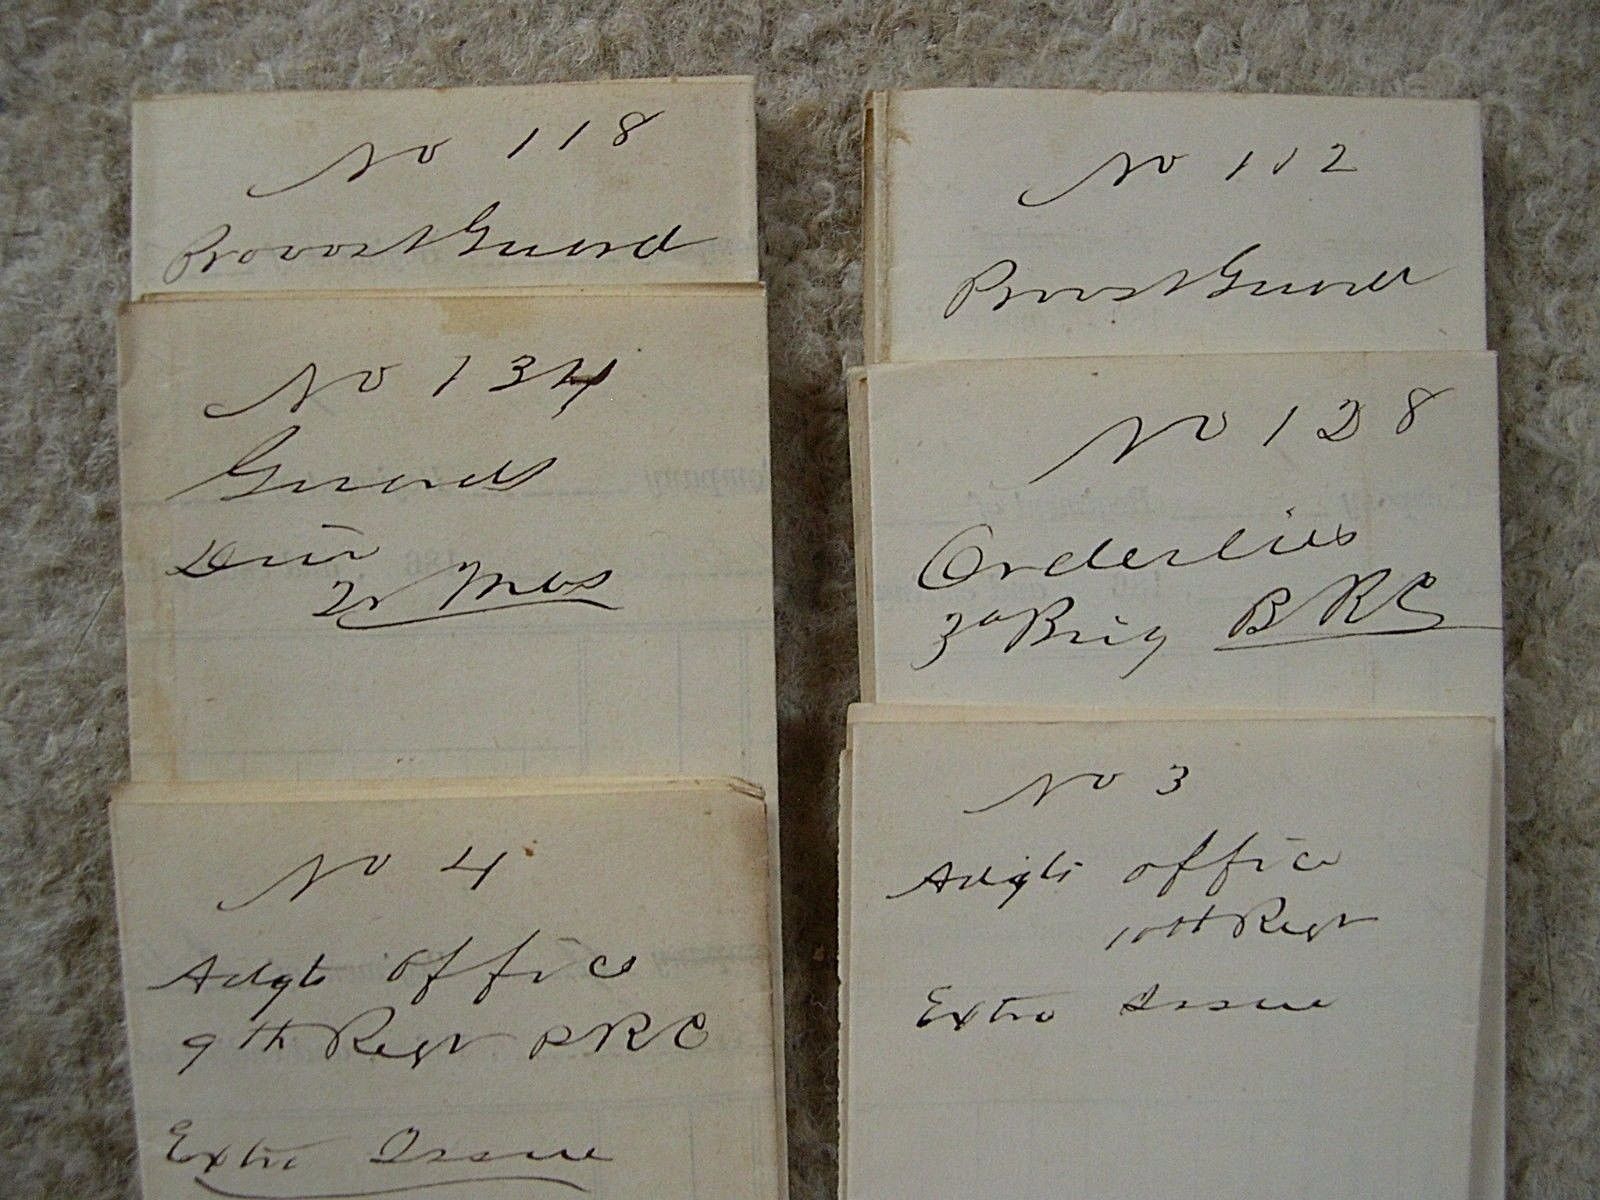 No 118
Provost Guard
No 134
Guards
Div
No 4
Adgts Office
9th Regt P R C
Extra Issue
No 112
Provst Guard
No 128
Orderlies
3d Brig P R C
No 3
Adgts Office
10th Regt
Extra Issue